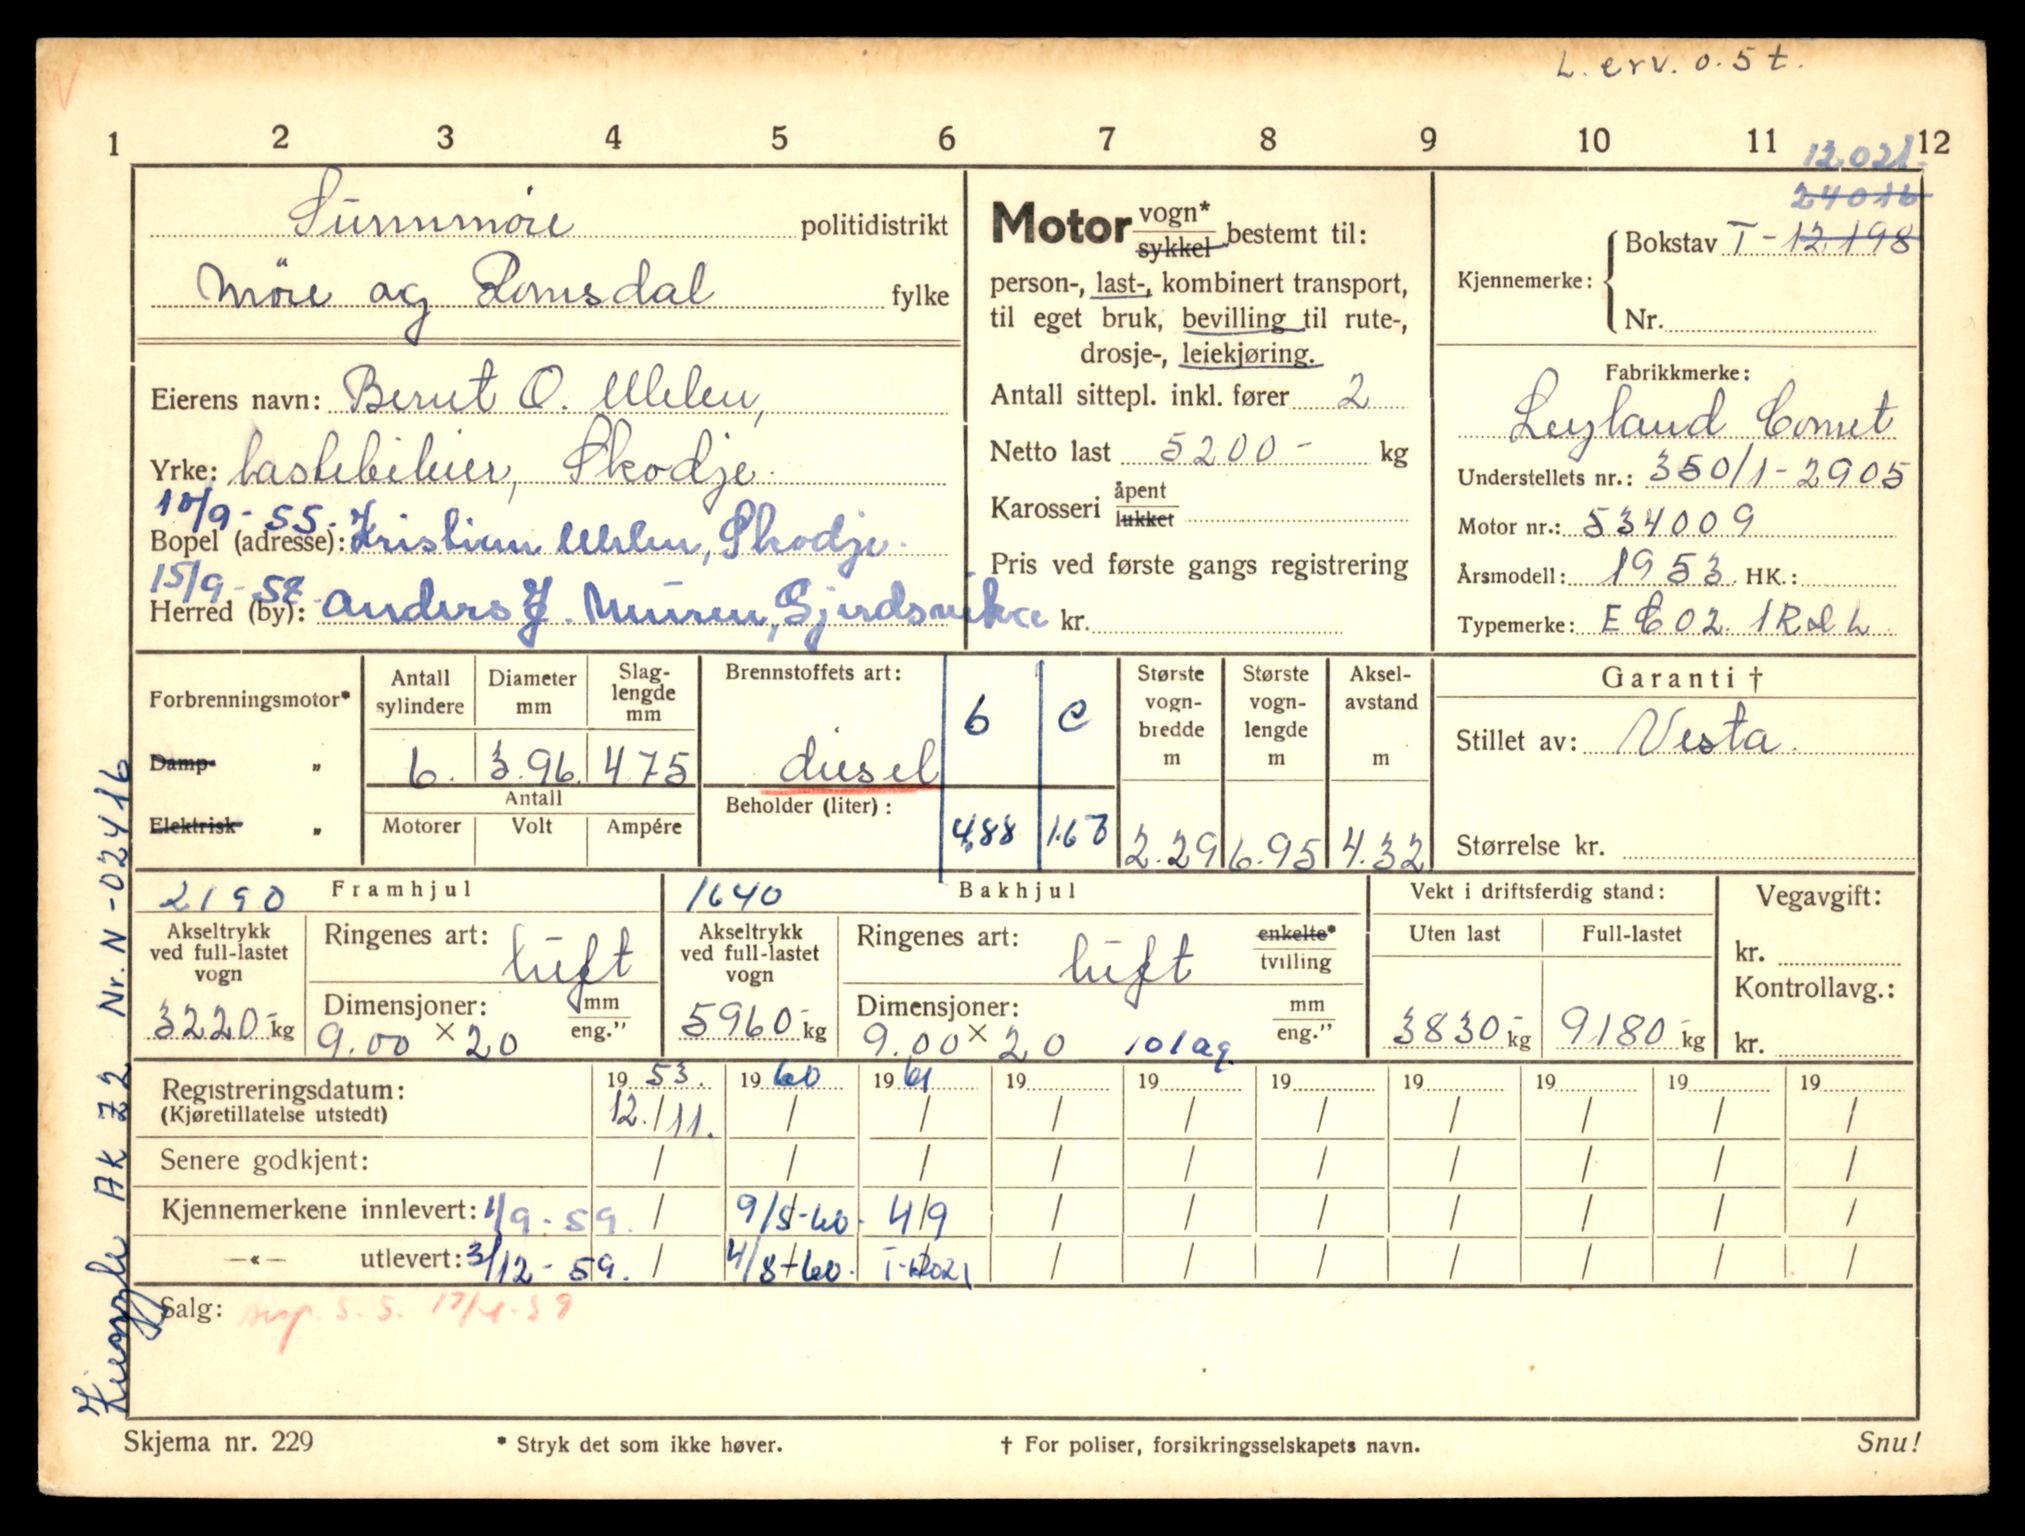 L. erv. o. 5 t.
1 2 3 4 5 6 7 8 9 10 11 12
12021.
24016
Sunnmøre politidistrikt
Møre og Romsdal fylke
Motor vogn* sykkel bestemt til:
person-, last-, kombinert transport,
til eget bruk, bevilling til rute-,
drosje-, leiekjøring.
Antall sittepl. inkl. fører 2
Netto last 5200- kg
Karosseri åpent lukket
Pris ved første gangs registrering
kr.
Kjennemerke: Bokstav T-12198
Nr.
Eierens navn: Bernt O. Uhlen,
Yrke: lastebileier, Skodje.
10/9-55.
Bopel (adresse): Kristian Uhlen, Skodje.
15/9-58.
Herred (by): Anders J. Muren, Gjerdsvika
Fabrikkmerke:
Leyland Comet
Understellets nr.: 350/1-2905
Motor nr.: 534009
Årsmodell: 1953. HK.:
Typemerke: E C 02. 1 R & L
Forbrenningsmotor*
Damp- „
Elektrisk „
Antall sylindere 6.
Diameter mm 3.96.
Slaglengde mm 4.75
Antall
Motorer Volt Ampére
Brennstoffets art:
diesel
Beholder (liter):
b c
4.88 1.63
Største vognbredde m 2.29
Største vognlengde m 6.95
Akselavstand m 4.32
Garanti †
Stillet av: Vesta.
Størrelse kr.
2190 Framhjul
Akseltrykk ved full-lastet vogn
3220.- kg
Ringenes art: luft
Dimensjoner: mm eng.”
9.00 × 20
1640 Bakhjul
Akseltrykk ved full-lastet vogn
5960- kg
Ringenes art: luft enkelte* tvilling
Dimensjoner: mm eng.”
9.00 × 20 10 lag
Vekt i driftsferdig stand:
Uten last Full-lastet
3830- kg 9180- kg
Vegavgift:
kr.
Kontrollavg.:
kr.
Registreringsdatum: 19 53. 19 60 19 61 19 19 19 19 19 19 19
(Kjøretillatelse utstedt) 12./11. / / / / / / / / /
Senere godkjent: / / / / / / / / / /
Kjennemerkene innlevert: 1/9-59. / 9/5-60. 4/9 / / / / / / /
—«— utlevert: 3/12-59. / 4/8-60. T-12021 / / / / / / /
Salg: 17/4-59
AK 72 Nr. N-02416
Skjema nr. 229
* Stryk det som ikke høver.
† For poliser, forsikringsselskapets navn.
Snu!